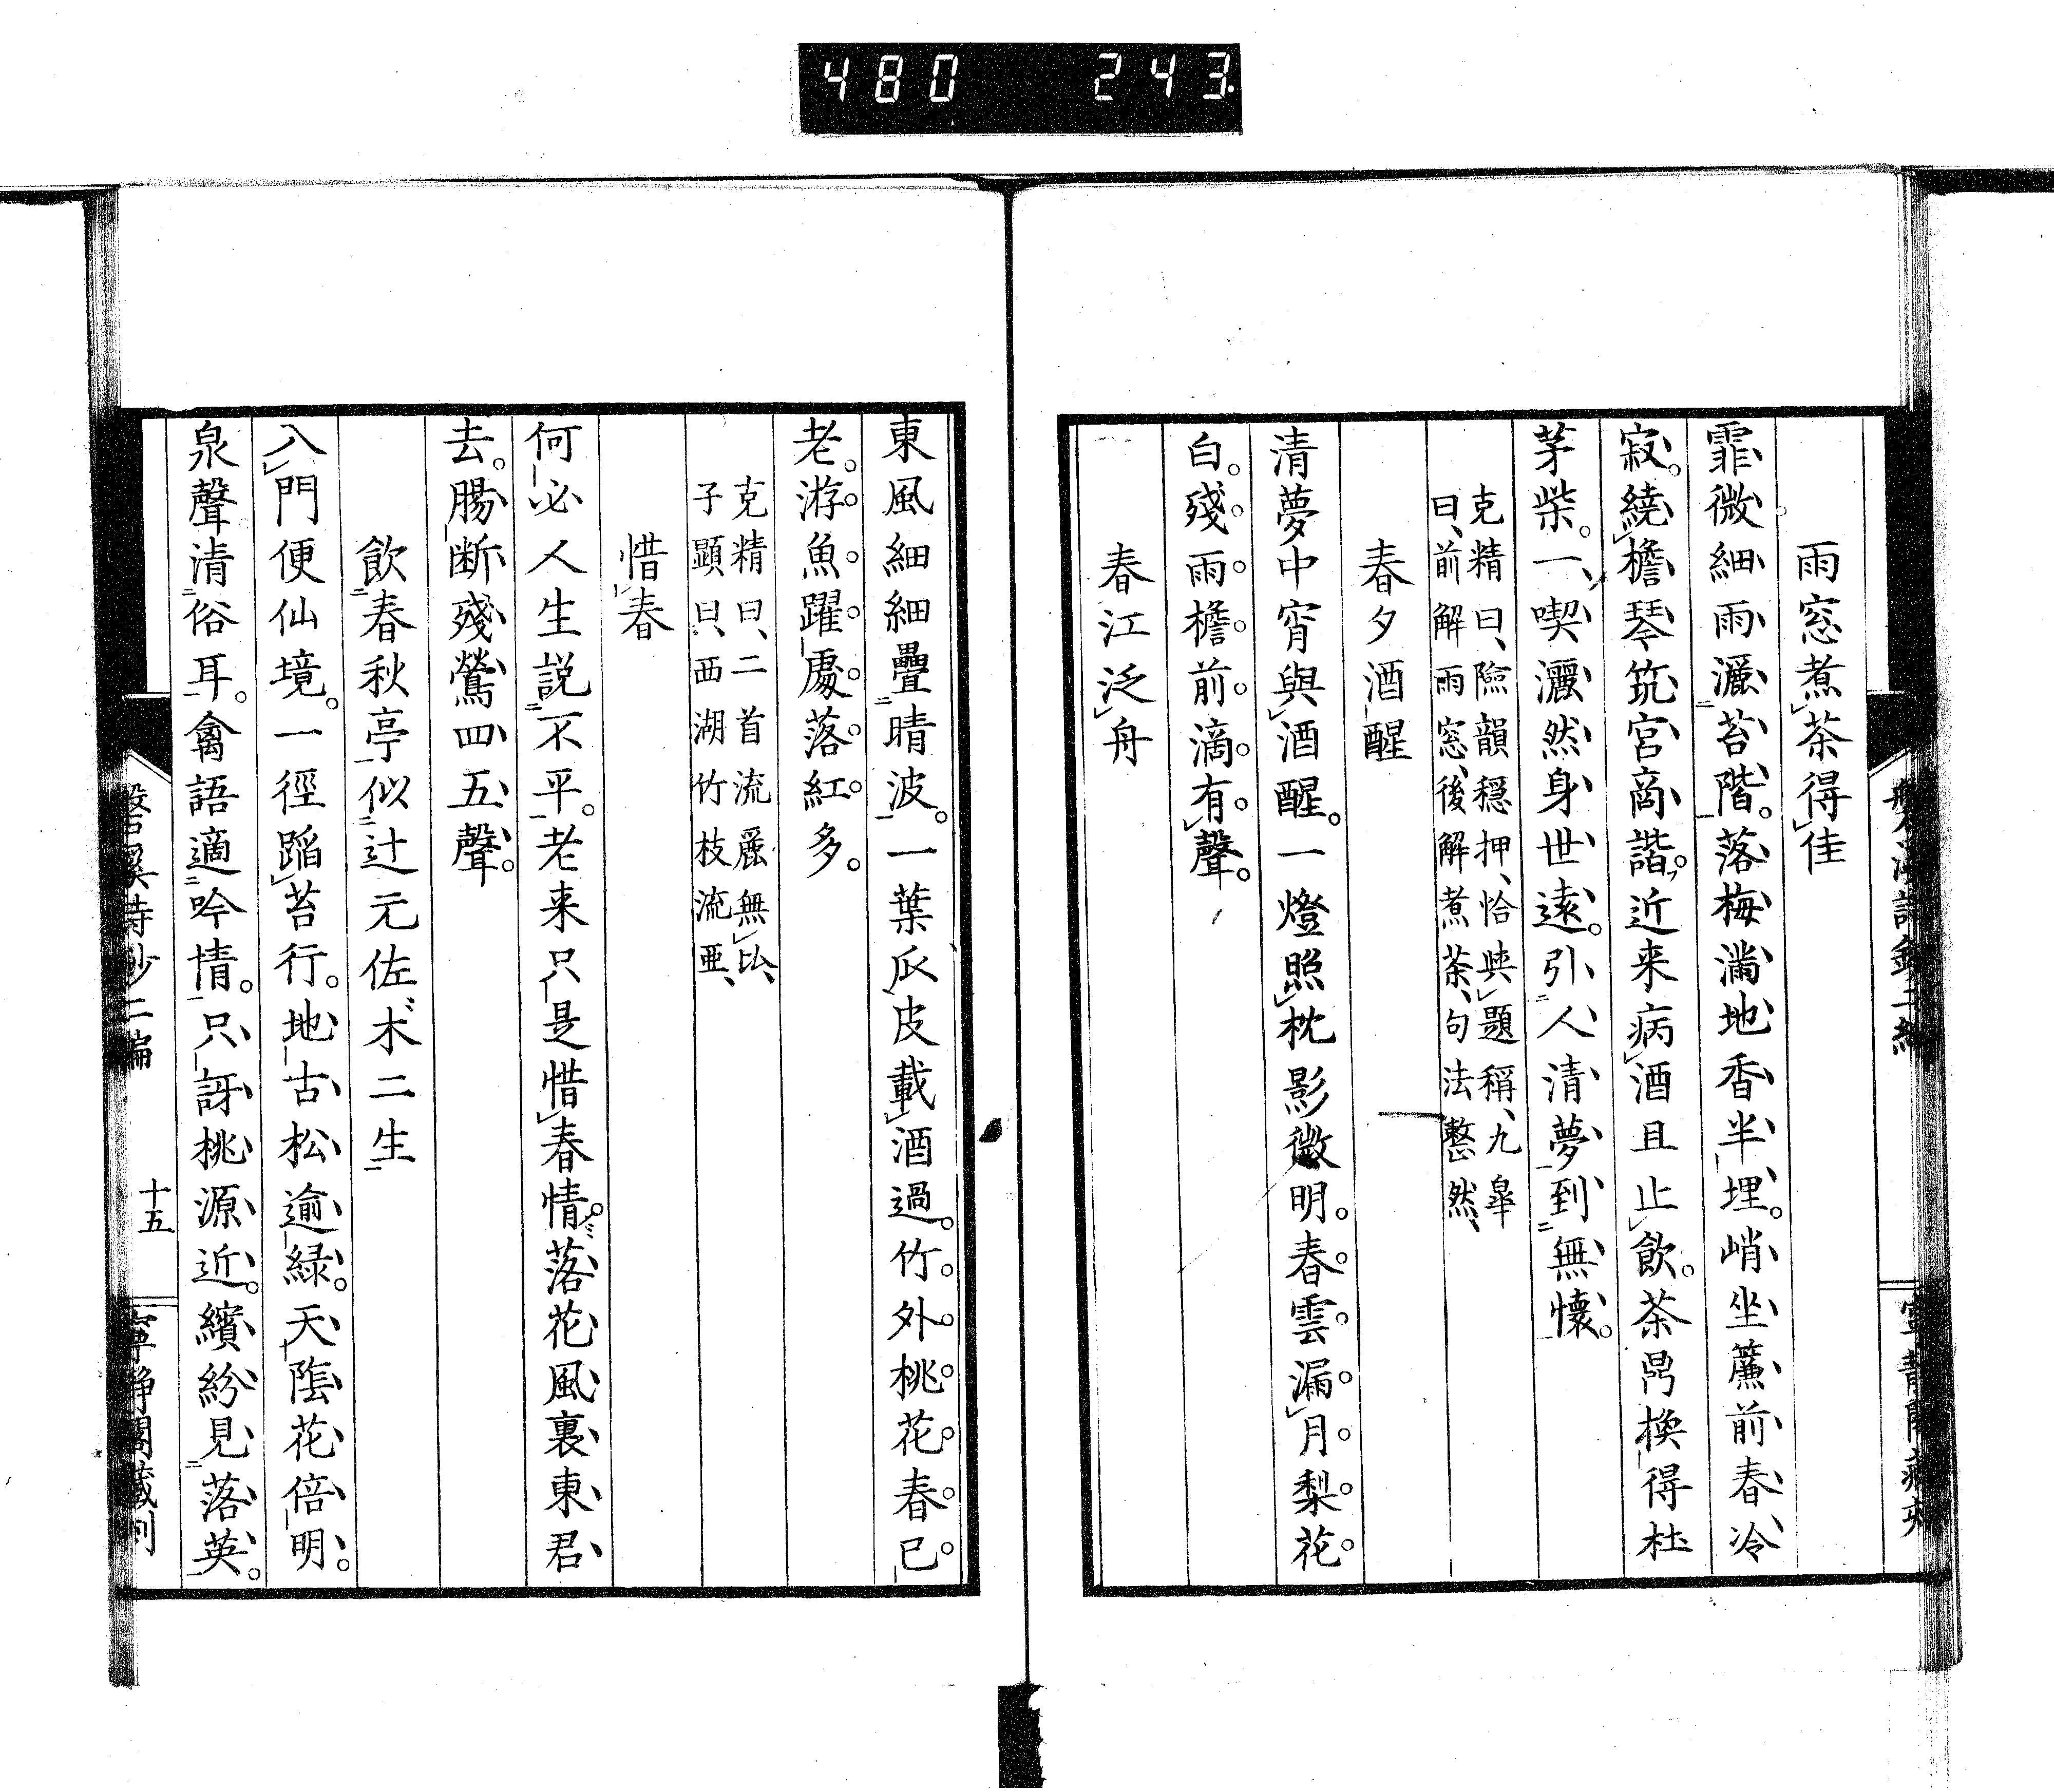 480 243
雨窓煮茶得佳
霏微細雨灑苔階落梅滿地香半埋峭坐簾前春冷
寂繞檐琴筑宮商諧近来病酒且止飲茶鼎換得杜
茅柴一喫灑然身世遠引人清夢到無懷
克精曰、險韻穩押、恰與題稱、九皐
曰、前解雨窓、後解煮茶、句法整然、
春夕酒醒
清夢中宵與酒醒一燈照枕影微明春雲漏月梨花
白殘雨檐前滴有聲
春江泛舟
東風細細疊晴波一葉瓜皮載酒過竹外桃花春已
老游魚躍處落紅多
克精曰、二首流麗無比、
子顯曰、西湖竹枝流亜、
惜春
何必人生説不平老来只是惜春情落花風裏東君
去腸断殘鶯四五聲
飲春秋亭似辻元佐木二生
入門便仙境一徑蹈苔行地古松逾緑天陰花倍明
泉聲清俗耳禽語適吟情只訝桃源近繽紛見落英
磐溪詩鈔二編 十五 寧静閣藏刊